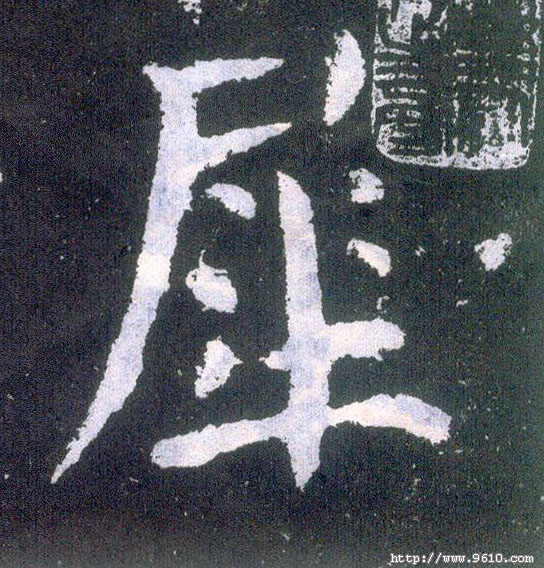 犀
http://www.9610.com